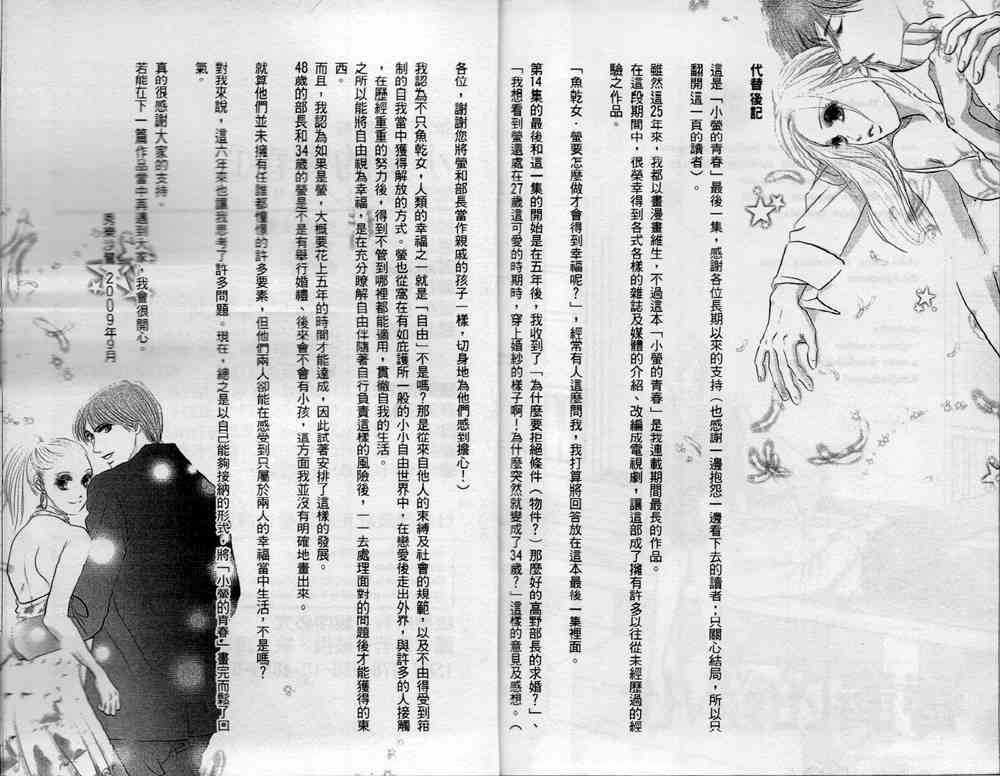 代替後記
這是「小螢的青春」最後一集，感謝各位長期以來的支持（也感謝一邊抱怨一邊看下去的讀者；只關心結局，所以只
翻開這一頁的讀者）。
雖然這25年來，我都以畫漫畫維生，不過這本「小螢的青春」是我連載期間最長的作品。
在這段期間中，很榮幸得到各式各樣的雜誌及媒體的介紹、改編成電視劇，讓這部成了擁有許多以往從未經歷過的經
驗之作品。
「魚乾女．螢要怎麼做才會得到幸福呢？」，經常有人這麼問我，我打算將回答放在這本最後一集裡面。
第14集的最後和這一集的開始是在五年後，我收到了「為什麼要拒絕條件（物件？）那麼好的高野部長的求婚？」、
「我想看到螢還處在27歲這可愛的時期時，穿上婚紗的樣子啊！為什麼突然就變成了34歲？」這樣的意見及感想。（
各位，謝謝您將螢和部長當作親戚的孩子一樣，切身地為他們感到擔心！）
我認為不只魚乾女，人類的幸福之一就是「自由」不是嗎？那是從來自他人的束縛及社會的規範，以及不由得受到箝
制的自我當中獲得解放的方式。螢也從窩在有如庇護所一般的小小自由世界中，在戀愛後走出外界，與許多的人接觸
，在歷經重重的努力後，得到不管到哪裡都能適用，貫徹自我的生活。
之所以能將自由視為幸福，是在充分瞭解自由伴隨著自行負責這樣的風險後，一一去處理面對的問題後才能獲得的東
西。
而且，我認為如果是螢，大概要花上五年的時間才能達成，因此試著安排了這樣的發展。
48歲的部長和34歲的螢是不是有舉行婚禮、後來會不會有小孩，這方面我並沒有明確地畫出來。
就算他們並未擁有任誰都憧憬的許多要素，但他們兩人卻能在感受到只屬於兩人的幸福當中生活，不是嗎？
對我來說，這六年來也讓我思考了許多問題。現在，總之是以自己能夠接納的形式，將「小螢的青春」畫完而鬆了口
氣。
真的很感謝大家的支持。
若能在下一篇作品當中再遇到大家，我會很開心。
2009年9月